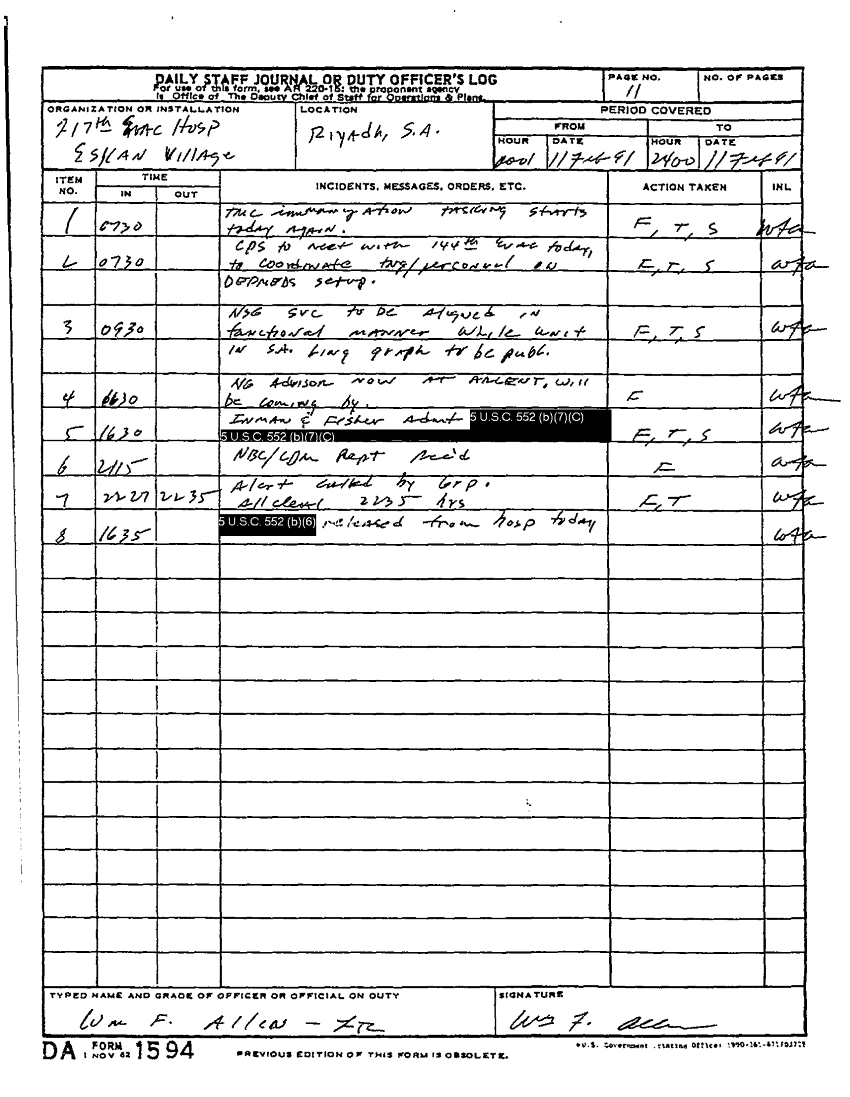 DAILY STAFF JOURNAL OR DUTY OFFICER'S LOG
For use of this form, see AR 220-15; the proponent agency
is Office of The Deputy Chief of Staff for Operations & Plans.
PAGE NO.
11
NO. OF PAGES
ORGANIZATION OR INSTALLATION
217th Evac Hosp
Eskan Village
LOCATION
Riyadh, S.A.
PERIOD COVERED
FROM
TO
HOUR DATE HOUR DATE
0001 11 Feb 91 2400 11 Feb 91
ITEM NO.
TIME
IN OUT
INCIDENTS, MESSAGES, ORDERS, ETC.
ACTION TAKEN
INL
1 0730 TMC tasking starts
today again. F, T, S wfa
2 0730 CPS to meet with 144th Evac today,
to coordinate tng/personnel on F, T, S wfa
DEPMEDS setup.
3 0930 NSG SVC to be aligned in
functional manner while unit F, T, S wfa
in SA. graph to be publ.
4 NG Advisor now at ARCENT, will
be coming by. F wfa
5 1630 Inman & Fisher Admit 5 U.S.C. 552 (b)(7)(C)
5 U.S.C. 552 (b)(7)(C) F, T, S wfa
6 2115 NBC/CDM Rept Rec'd F wfa
7 2227 2235 Alert called by Grp.
All clear 2235 hrs F, T wfa
8 1635 5 U.S.C. 552 (b)(6) released from hosp today wfa
TYPED NAME AND GRADE OF OFFICER OR OFFICIAL ON DUTY
Wm F. Allen - LTC
SIGNATURE
Wm F. Allen
DA FORM 1 NOV 62 1594
PREVIOUS EDITION OF THIS FORM IS OBSOLETE.
U.S. Government Printing Office: 1990-261-871/